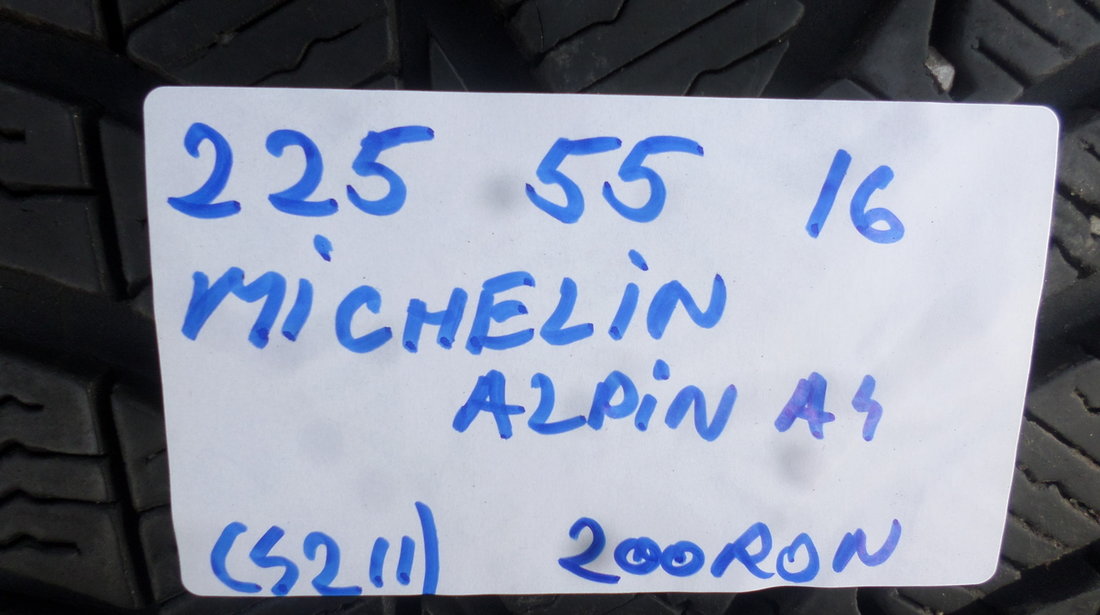 225 55 16
MiCHELiN
ALPiN A4
(4211) 200RON